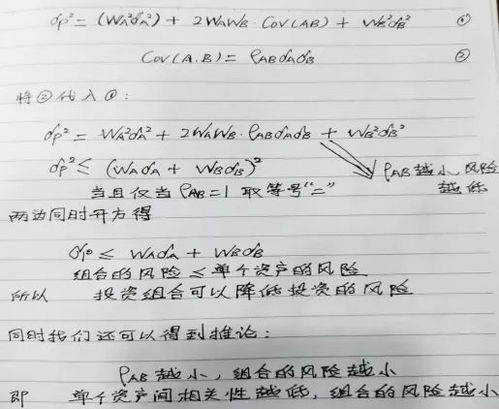 σp² = (WA²σA²) + 2WAWB · Cov(AB) + WB²σB² ①
Cov(A.B) = ρABσAσB ②
将②代入①:
σp² = WA²σA² + 2WAWB · ρABσAσB + WB²σB²
σp² ≤ (WAσA + WBσB)²
ρAB越小,风险越低
当且仅当ρAB=1取等号“=”
两边同时开方得
σp ≤ WAσA + WBσB
组合的风险≤单个资产的风险
所以 投资组合可以降低投资的风险
同时我们还可以得到推论:
ρAB越小,组合的风险越小
即 单个资产间相关性越低,组合的风险越小